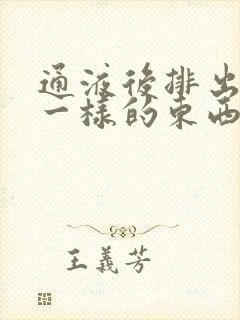 通液後排出
一樣的東西
王義芳